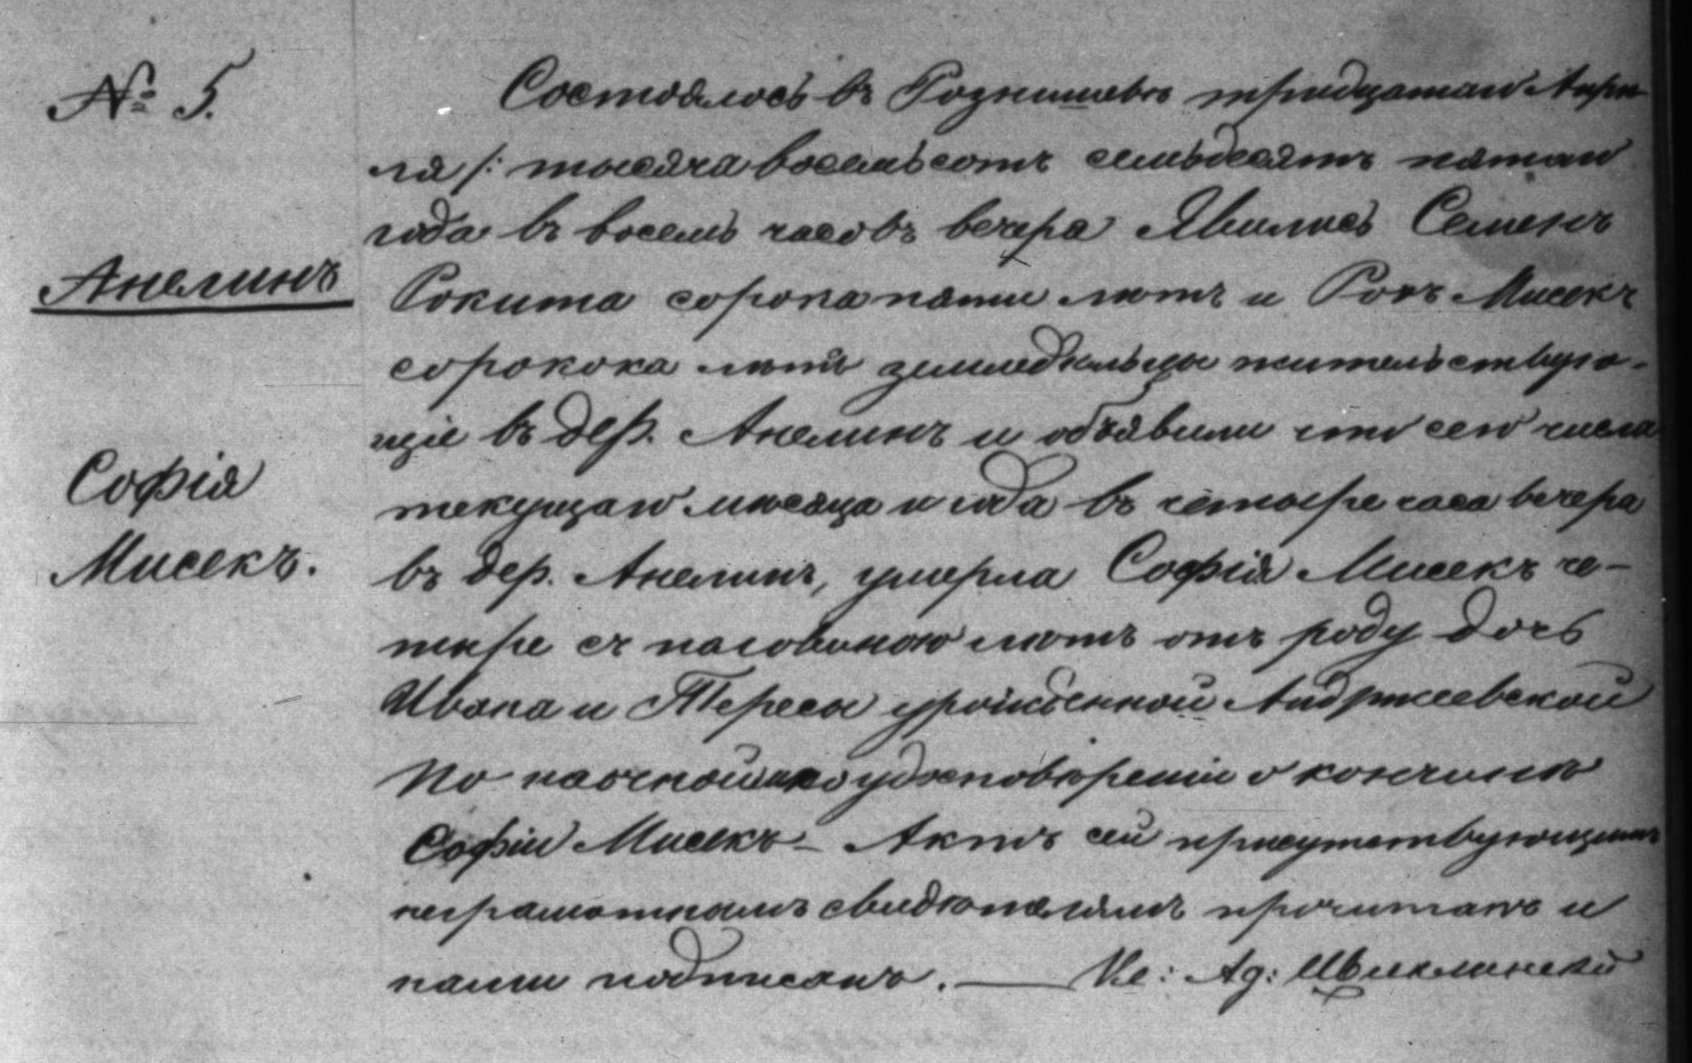 № 5.
Анелинъ
Софія
Мисекъ.
Состоялось въ Рознишевѣ тридцатаго Апрѣ-
ля /: тысяча восемьсотъ семьдесятъ пятаго
года въ восемь часовъ вечера Явились Семенъ
Рокита сорока пяти лѣтъ и Рохъ Мисекъ
сорокока лѣтъ земледѣльцы жительствую-
щіе въ дер. Анелинъ и объявили что сего числа
текущаго мѣсяца и года въ четыре часа вечера
въ дер. Анелинъ, умерла Софія Мисекъ че-
тыре съ половиною лѣтъ отъ роду дочь
Ивана и Тересы уройжденной Андржеевской
По наочной удостовѣреніи о кончинѣ
Софіи Мисекъ – Актъ сей присутствующимъ
неграмотнымъ свидѣтелямъ прочитанъ и
нами подписанъ. — Кс: Ад: